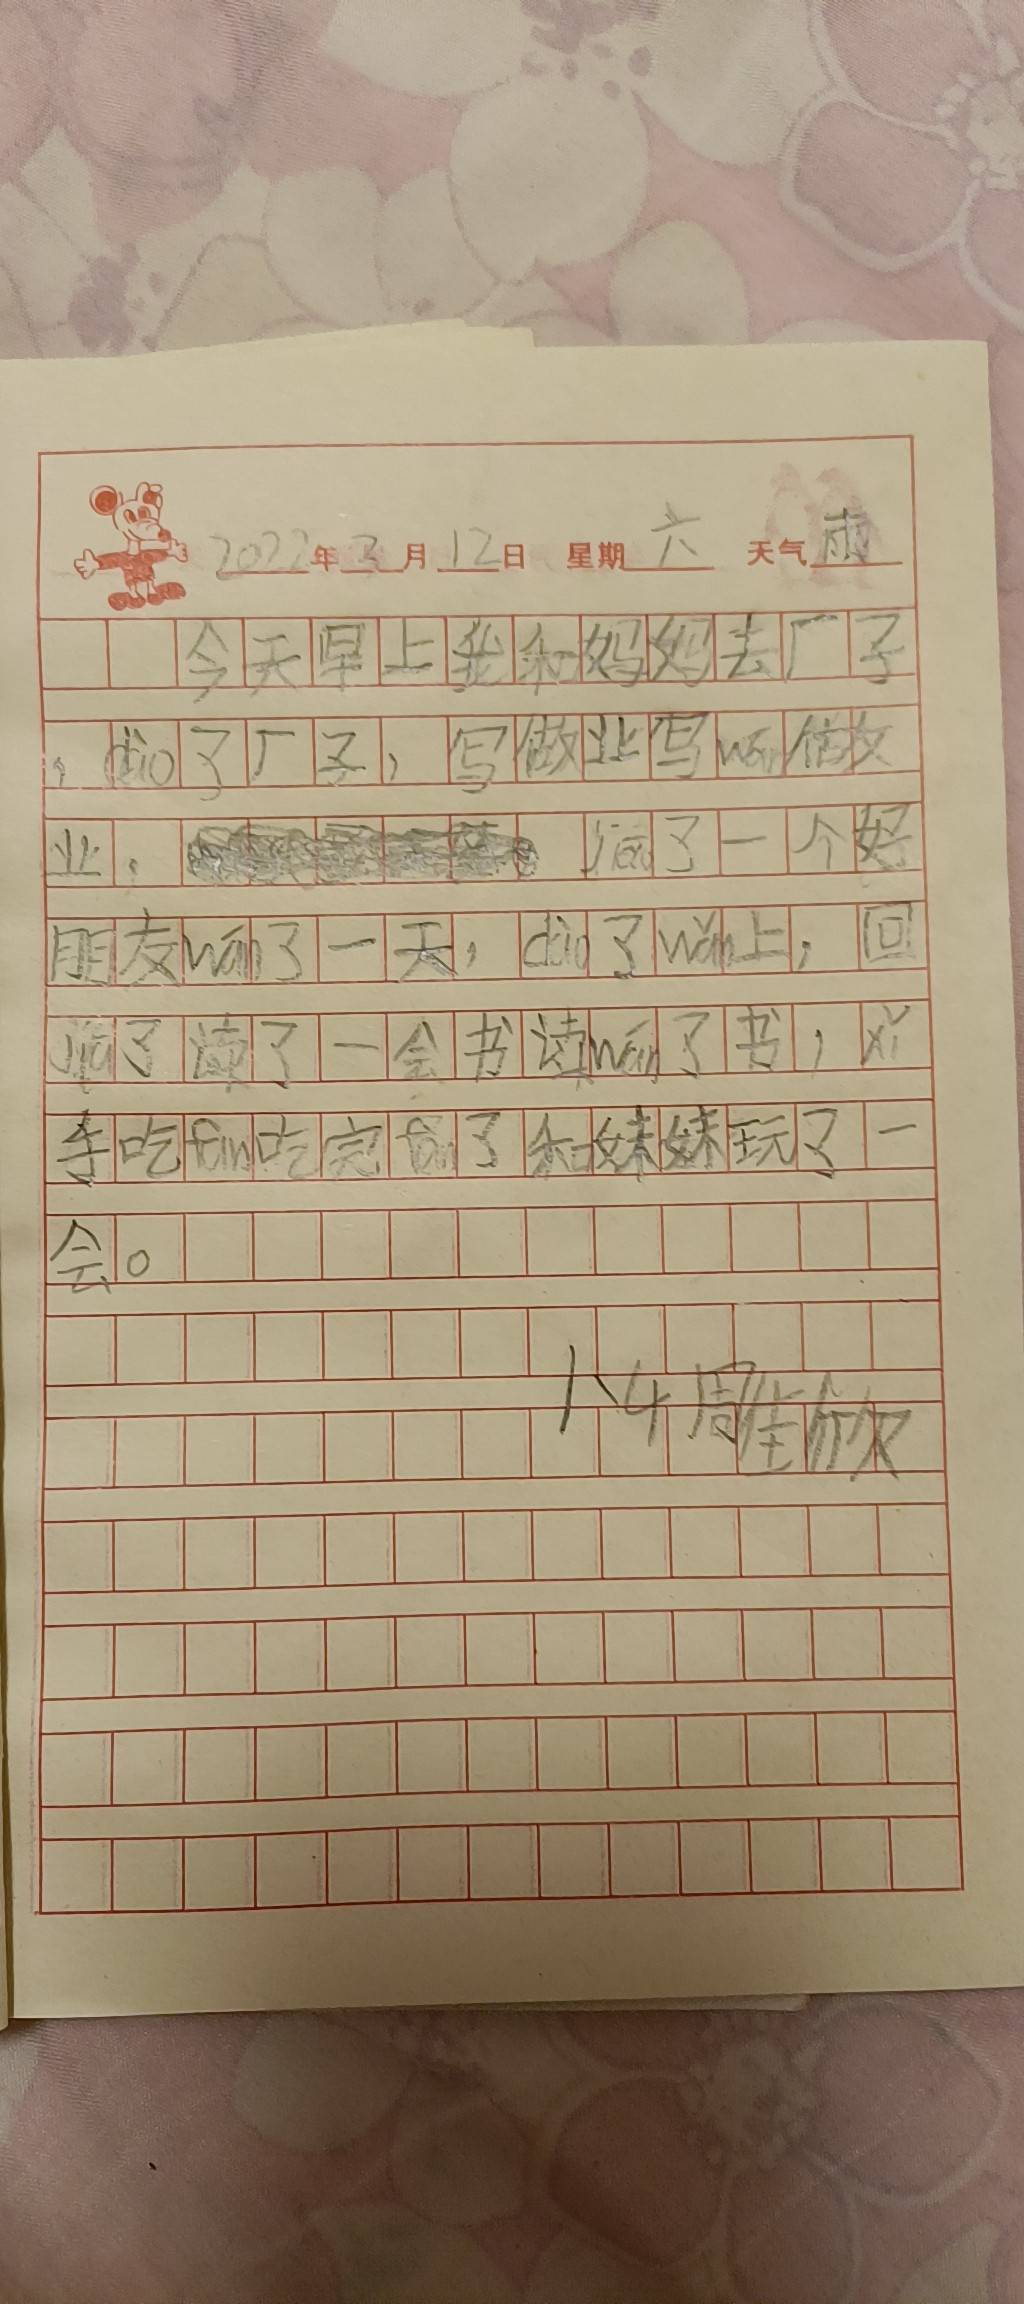 2022年3月12日 星期六 天气雨
今天早上我和妈妈去厂子
，dào了厂子，写做业写wán做
业，jiāo了一个好
朋友wán了一天，dào了wǎn上，回
jiā了读了一会书读wán了书，xǐ
手吃fàn吃完fàn了和妹妹玩了一
会。
1、4周佳欣